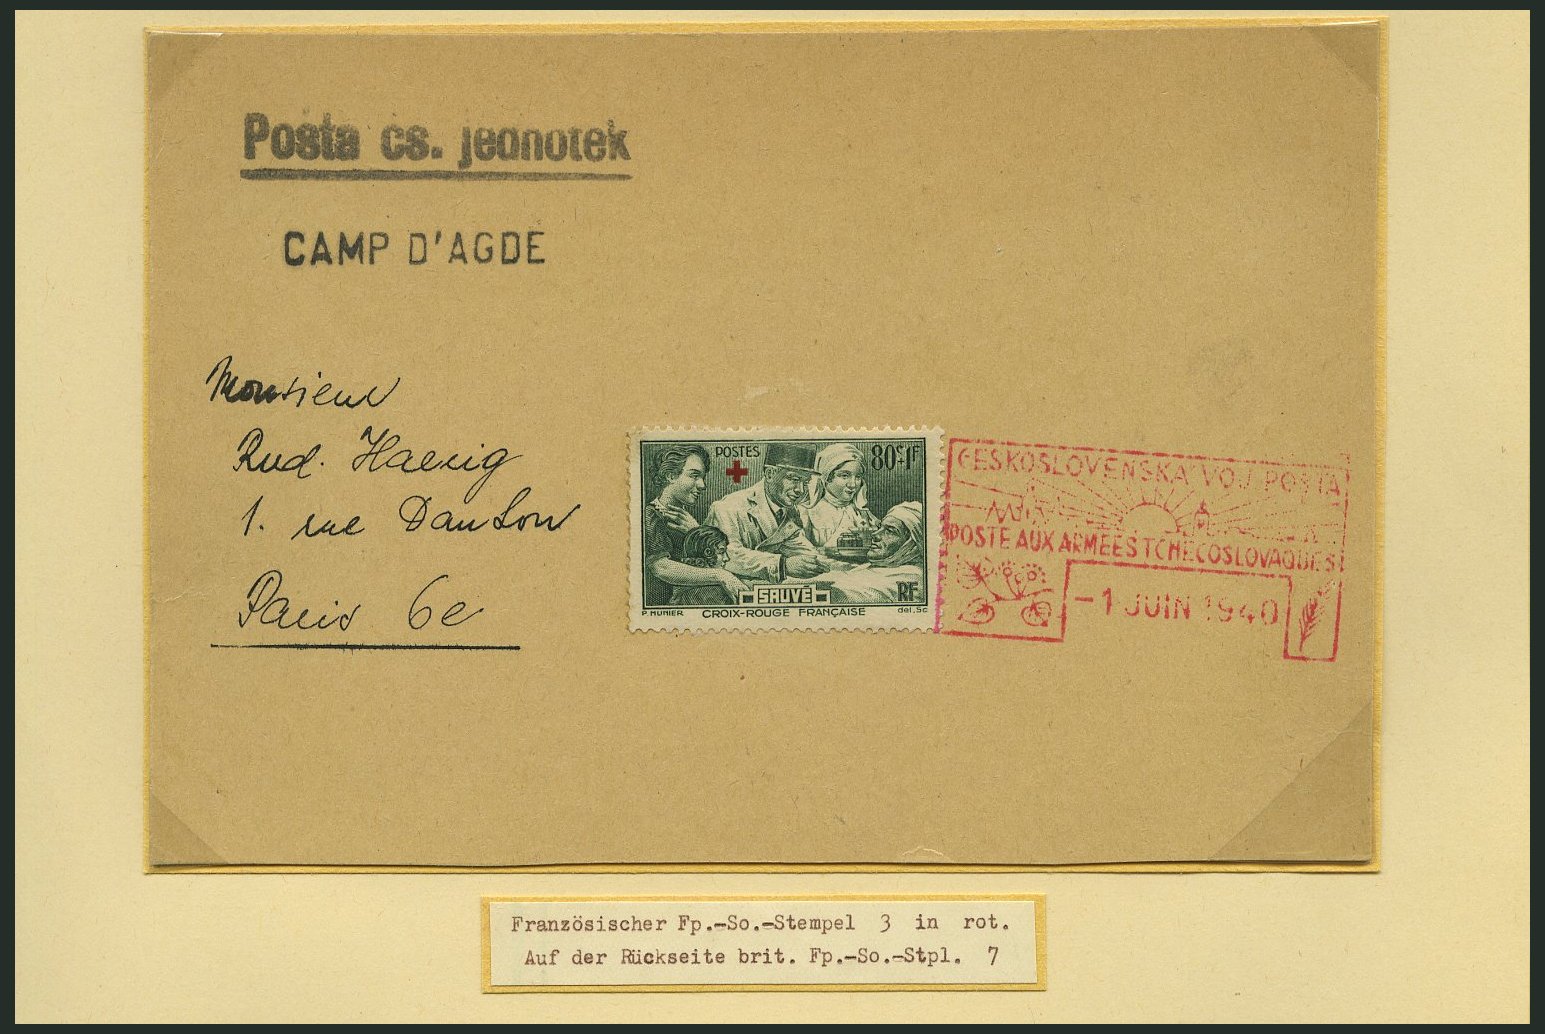 Posta čs. jednotek
CAMP D'AGDE
Monsieur
Rud. Haerig
1. rue Danton
Paris 6e
POSTES
80c+1F
SAUVÉ
RF
P. MUNIER CROIX-ROUGE FRANÇAISE del. Sc
ČESKOSLOVENSKÁ VOJ. POŠTA
POSTE AUX ARMEES TCHECOSLOVAQUES
-1 JUIN 1940
Französischer Fp.-So.-Stempel 3 in rot.
Auf der Rückseite brit. Fp.-So.-Stpl. 7